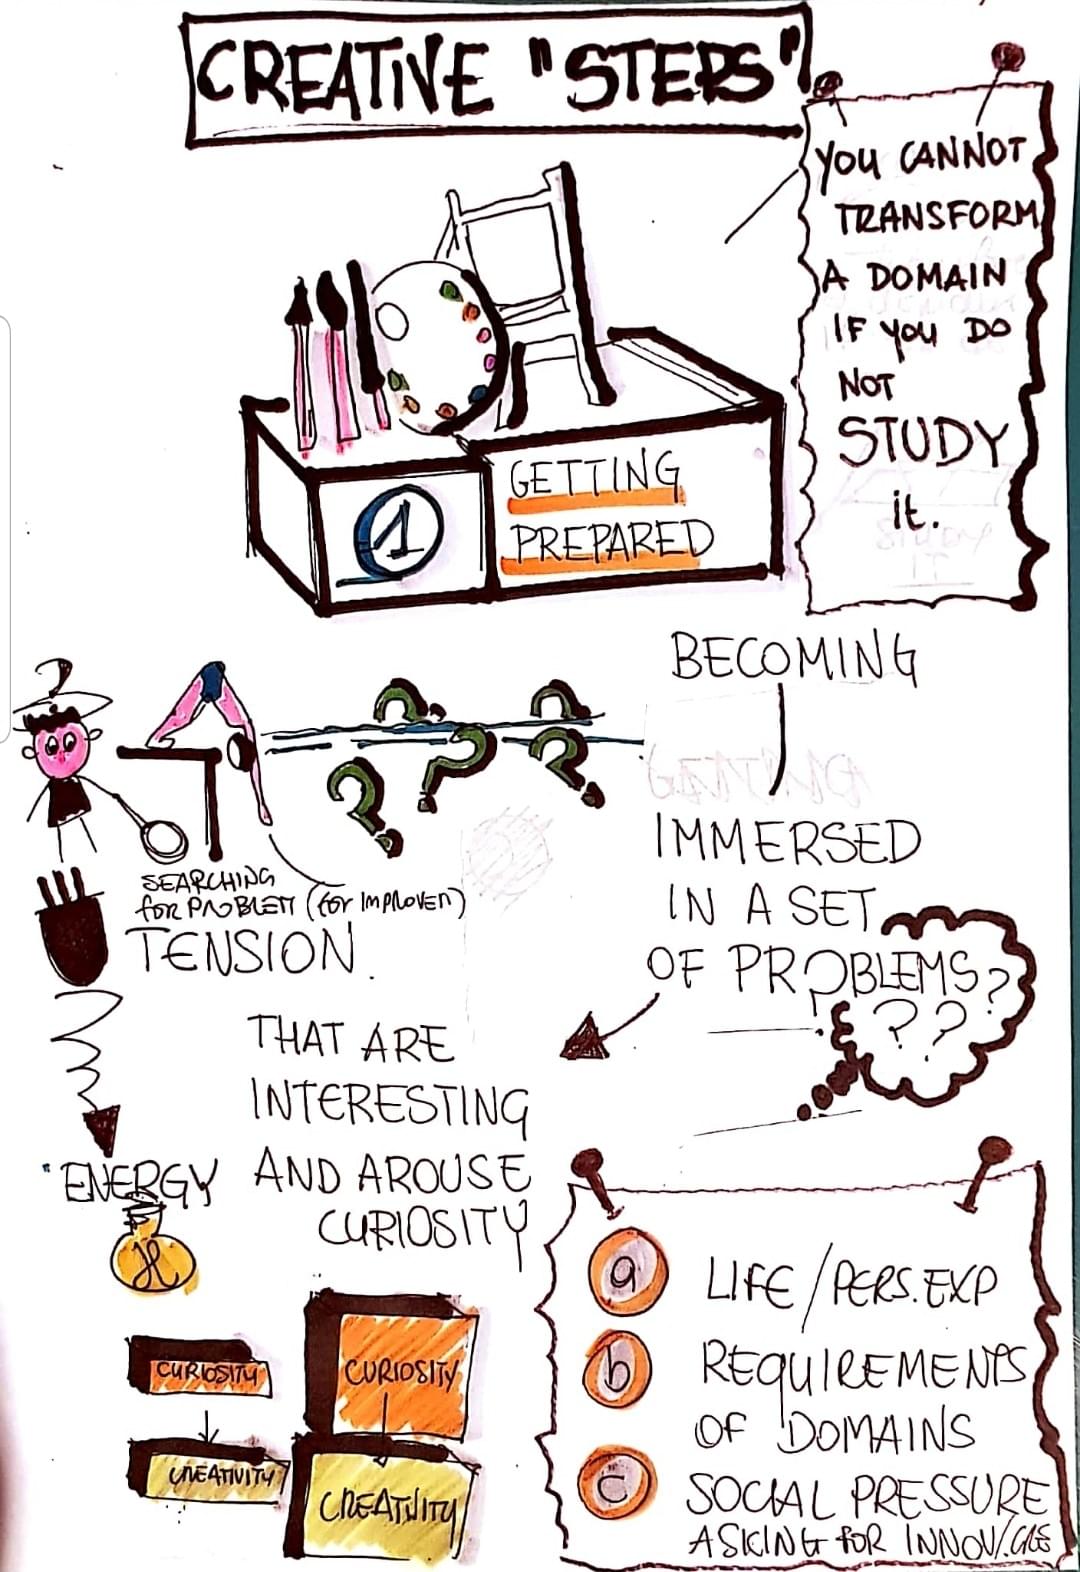 CREATIVE "STEPS"
YOU CANNOT
TRANSFORM
A DOMAIN
IF YOU DO
NOT
STUDY
it.
1
GETTING
PREPARED
BECOMING
IMMERSED
IN A SET
OF PROBLEMS?
??
SEARCHING
for PROBLEM (for IMPROVEM)
TENSION.
THAT ARE
INTERESTING
AND AROUSE
CURIOSITY
"ENERGY
CURIOSITY
CREATIVITY
CURIOSITY
CREATIVITY
a LIFE/PERS.EXP
b REQUIREMENTS
OF DOMAINS
c SOCIAL PRESSURE
ASKING FOR